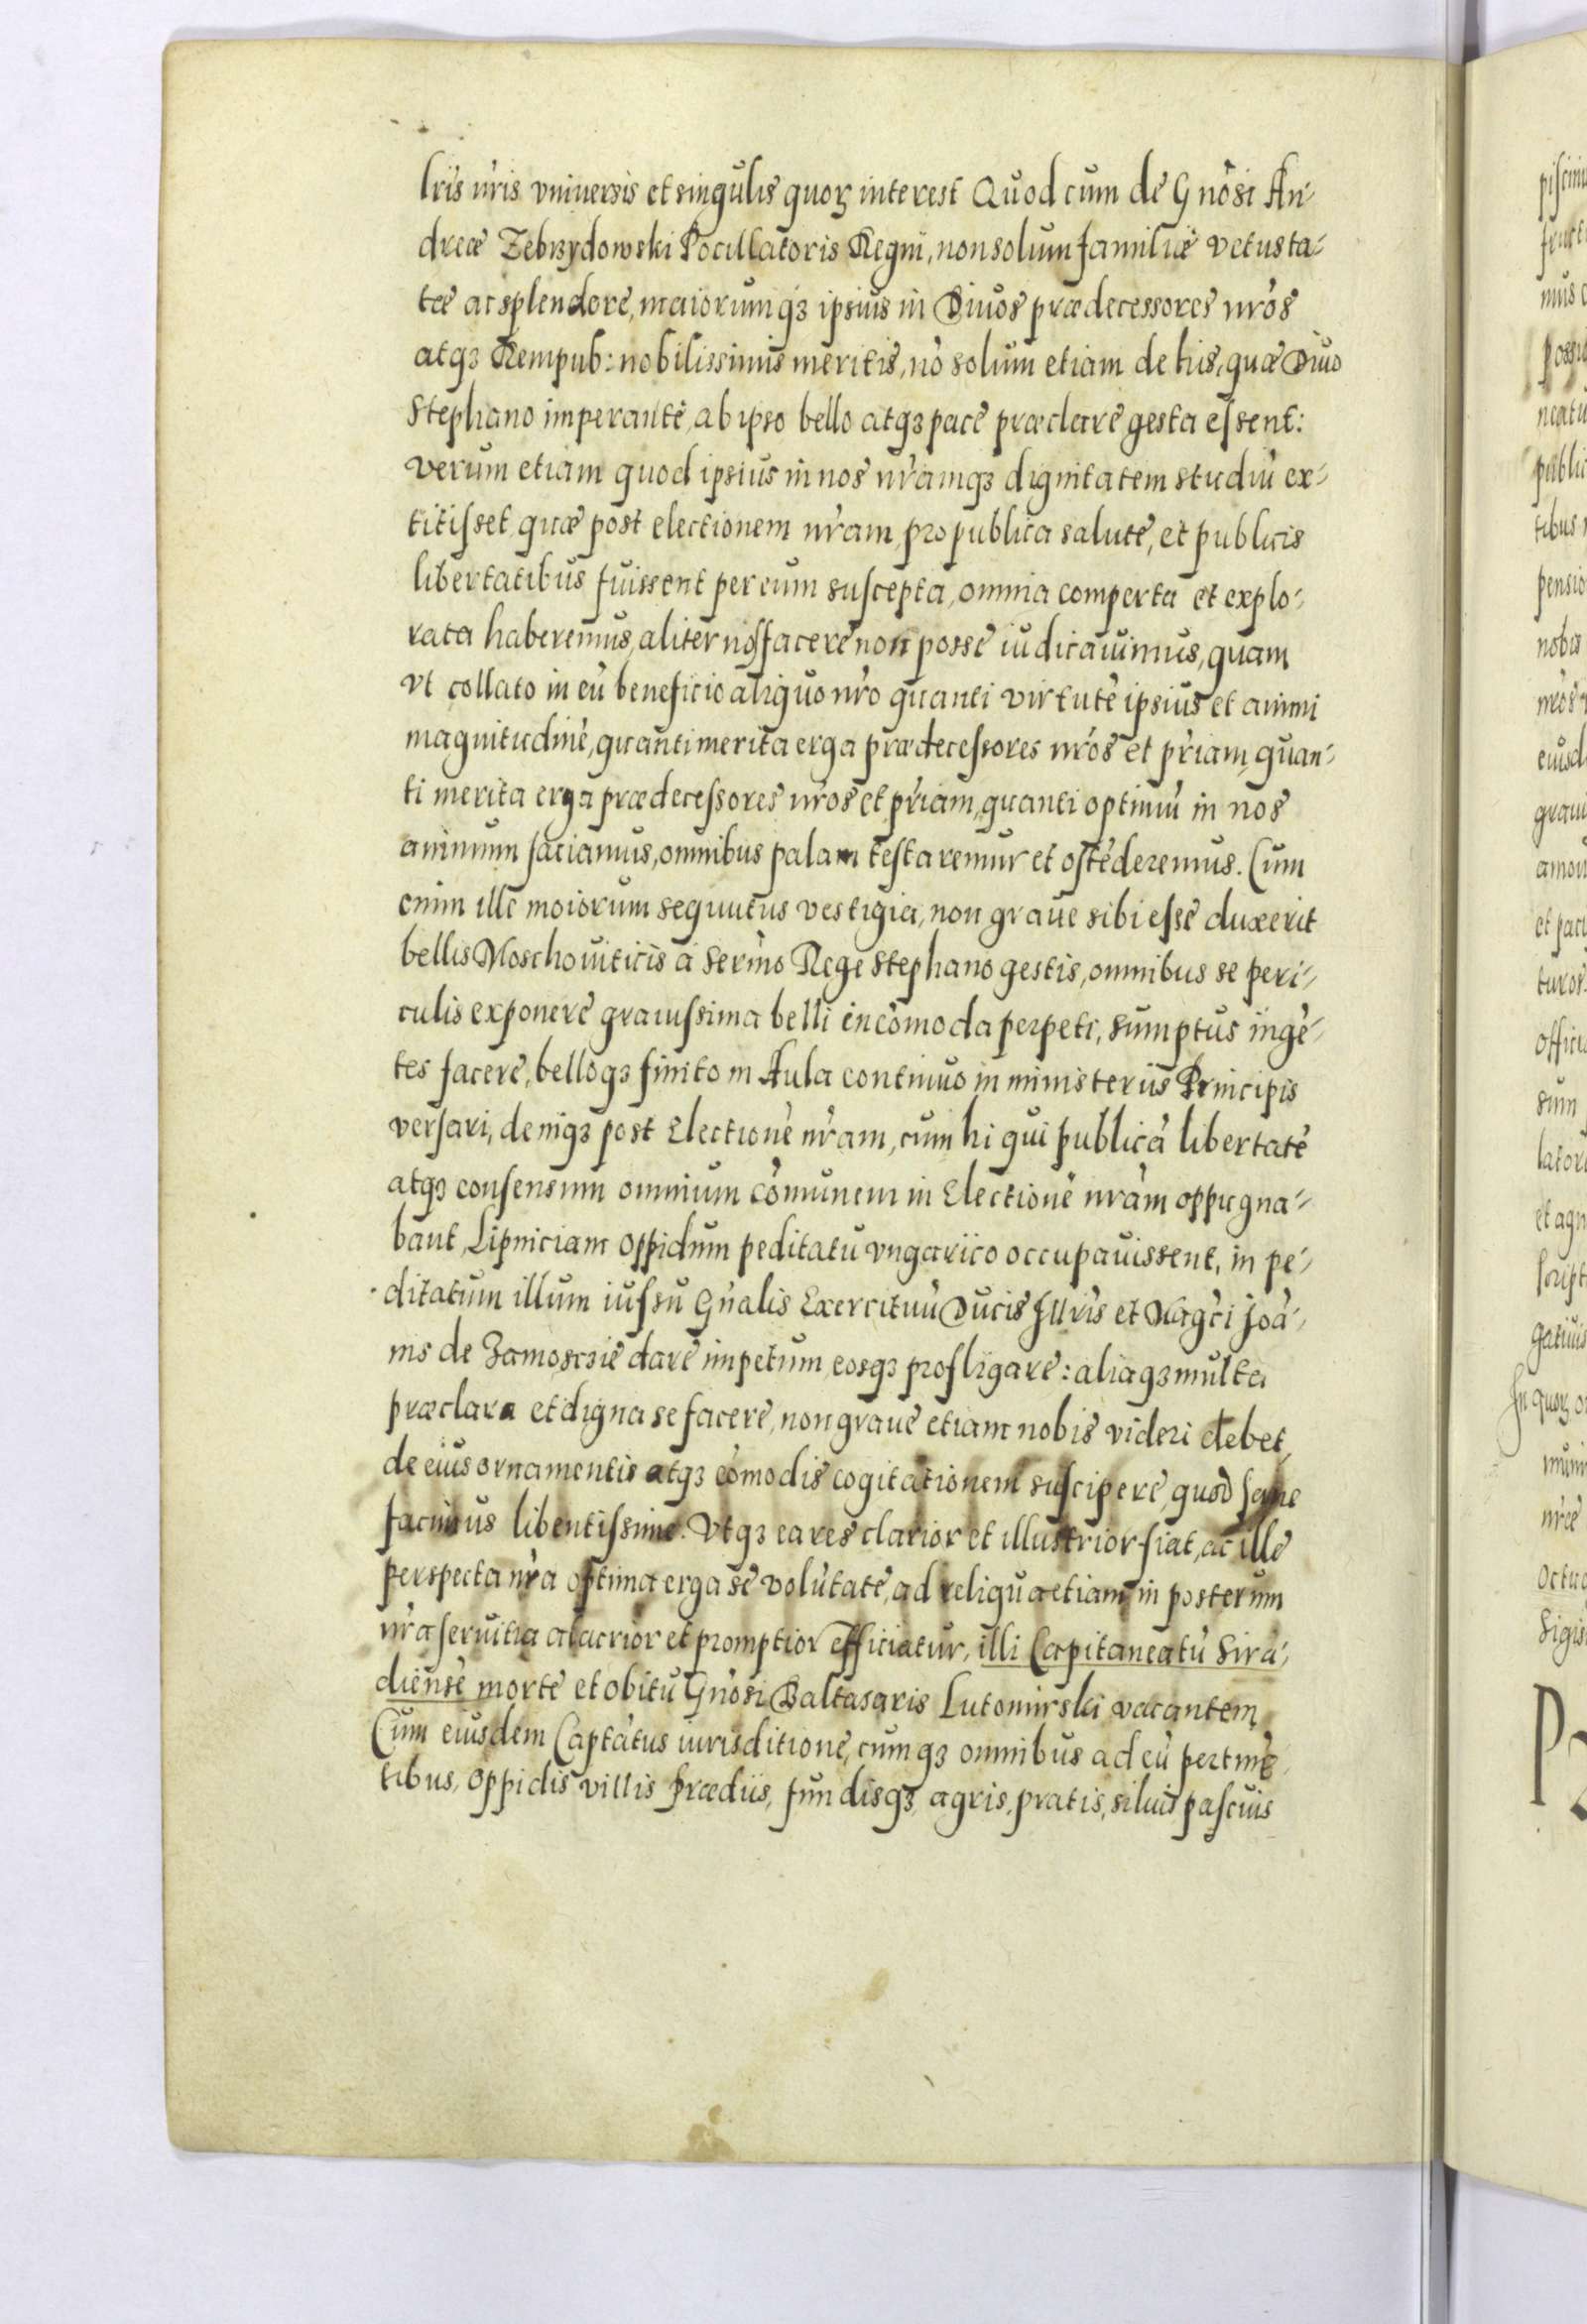 lris nris vniuersis et singulis quorꝫ interest Quod cum de Gnosi An-
dreæ Zebrzydowski Pocillatoris Regni, non solum familiæ vetusta-
te ac splendore, maiorumqꝫ ipsius in Diuos prædecessores nros
atqꝫ Rempub: nobilissimis meritis, nō solum etiam de his, quæ Diuo
Stephano imperante, ab ipso bello atqꝫ pace præclare gesta essent:
verum etiam quod ipsius in nos nramqꝫ dignitatem studiū ex-
titisset, quæ post electionem nram, pro publica salute, et publicis
libertatibus fuissent per eum suscepta, omnia comperta et explo-
rata haberemus, aliter nos facere non posse iudicauimus, quam
vt collato in eū beneficio aliquo nro quanti virtutē ipsius et animi
magnitudinē, quanti merita erga prædecessores nros et priam, quan-
ti merita erga prædecessores nros et priam, quanti optimū in nos
animum faciamus, omnibus palam testaremur et ostēderemus. Cum
enim ille moiorum sequutus vestigia, non graue sibi esse duxerit
bellis Moschouiticis a Sermo Rege Stephano gestis, omnibus se peri-
culis exponere grauissima belli incōmoda perpeti, sumptus ingē-
tes facere, belloqꝫ finito in Aula continuo in ministeriis Principis
versari, deniqꝫ post Electionē nram, cum hi qui publicā libertatē
atqꝫ consensum omnium cōmunem in Electionē nram oppugna-
bant, Lipniciam oppidum peditatu vngarico occupauissent, in pe-
ditatum illum iussu Gnalis Exercituū Ducis Illris et Magci Joā-
nis de Zamoscie dare impetum eosqꝫ profligare: aliaqꝫ multa
præclara et digna se facere, non graue etiam nobis videri debet,
de eius ornamentis atqꝫ cōmodis cogitationem suscipere, quod sane
facimus libentissime. Vtqꝫ ea res clarior et illustrior fiat, ac ille
perspecta nra optima erga se volūtate, ad reliqua etiam in posterum
nra seruitia alacrior et promptior efficiatur, illi Capitaneatū Sira-
diensē morte et obitu Gnosi Baltasaris Lutomirski vacantem
Cum eiusdem Captātus iurisditione, cumqꝫ omnibus ad eū pertinē-
tibus, oppidis villis prædiis, fundisqꝫ, agris, pratis, siluis pascuis